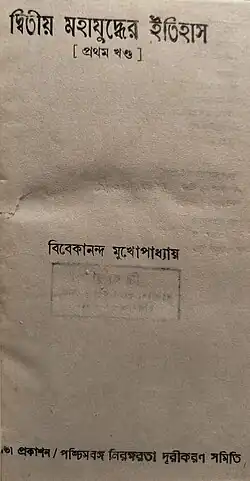 দ্বিতীয় মহাযুদ্ধের ইতিহাস
[ প্রথম খণ্ড ]
বিবেকানন্দ মুখোপাধ্যায়
প্রকাশন / পশ্চিমবঙ্গ নিরক্ষরতা দূরীকরণ সমিতি